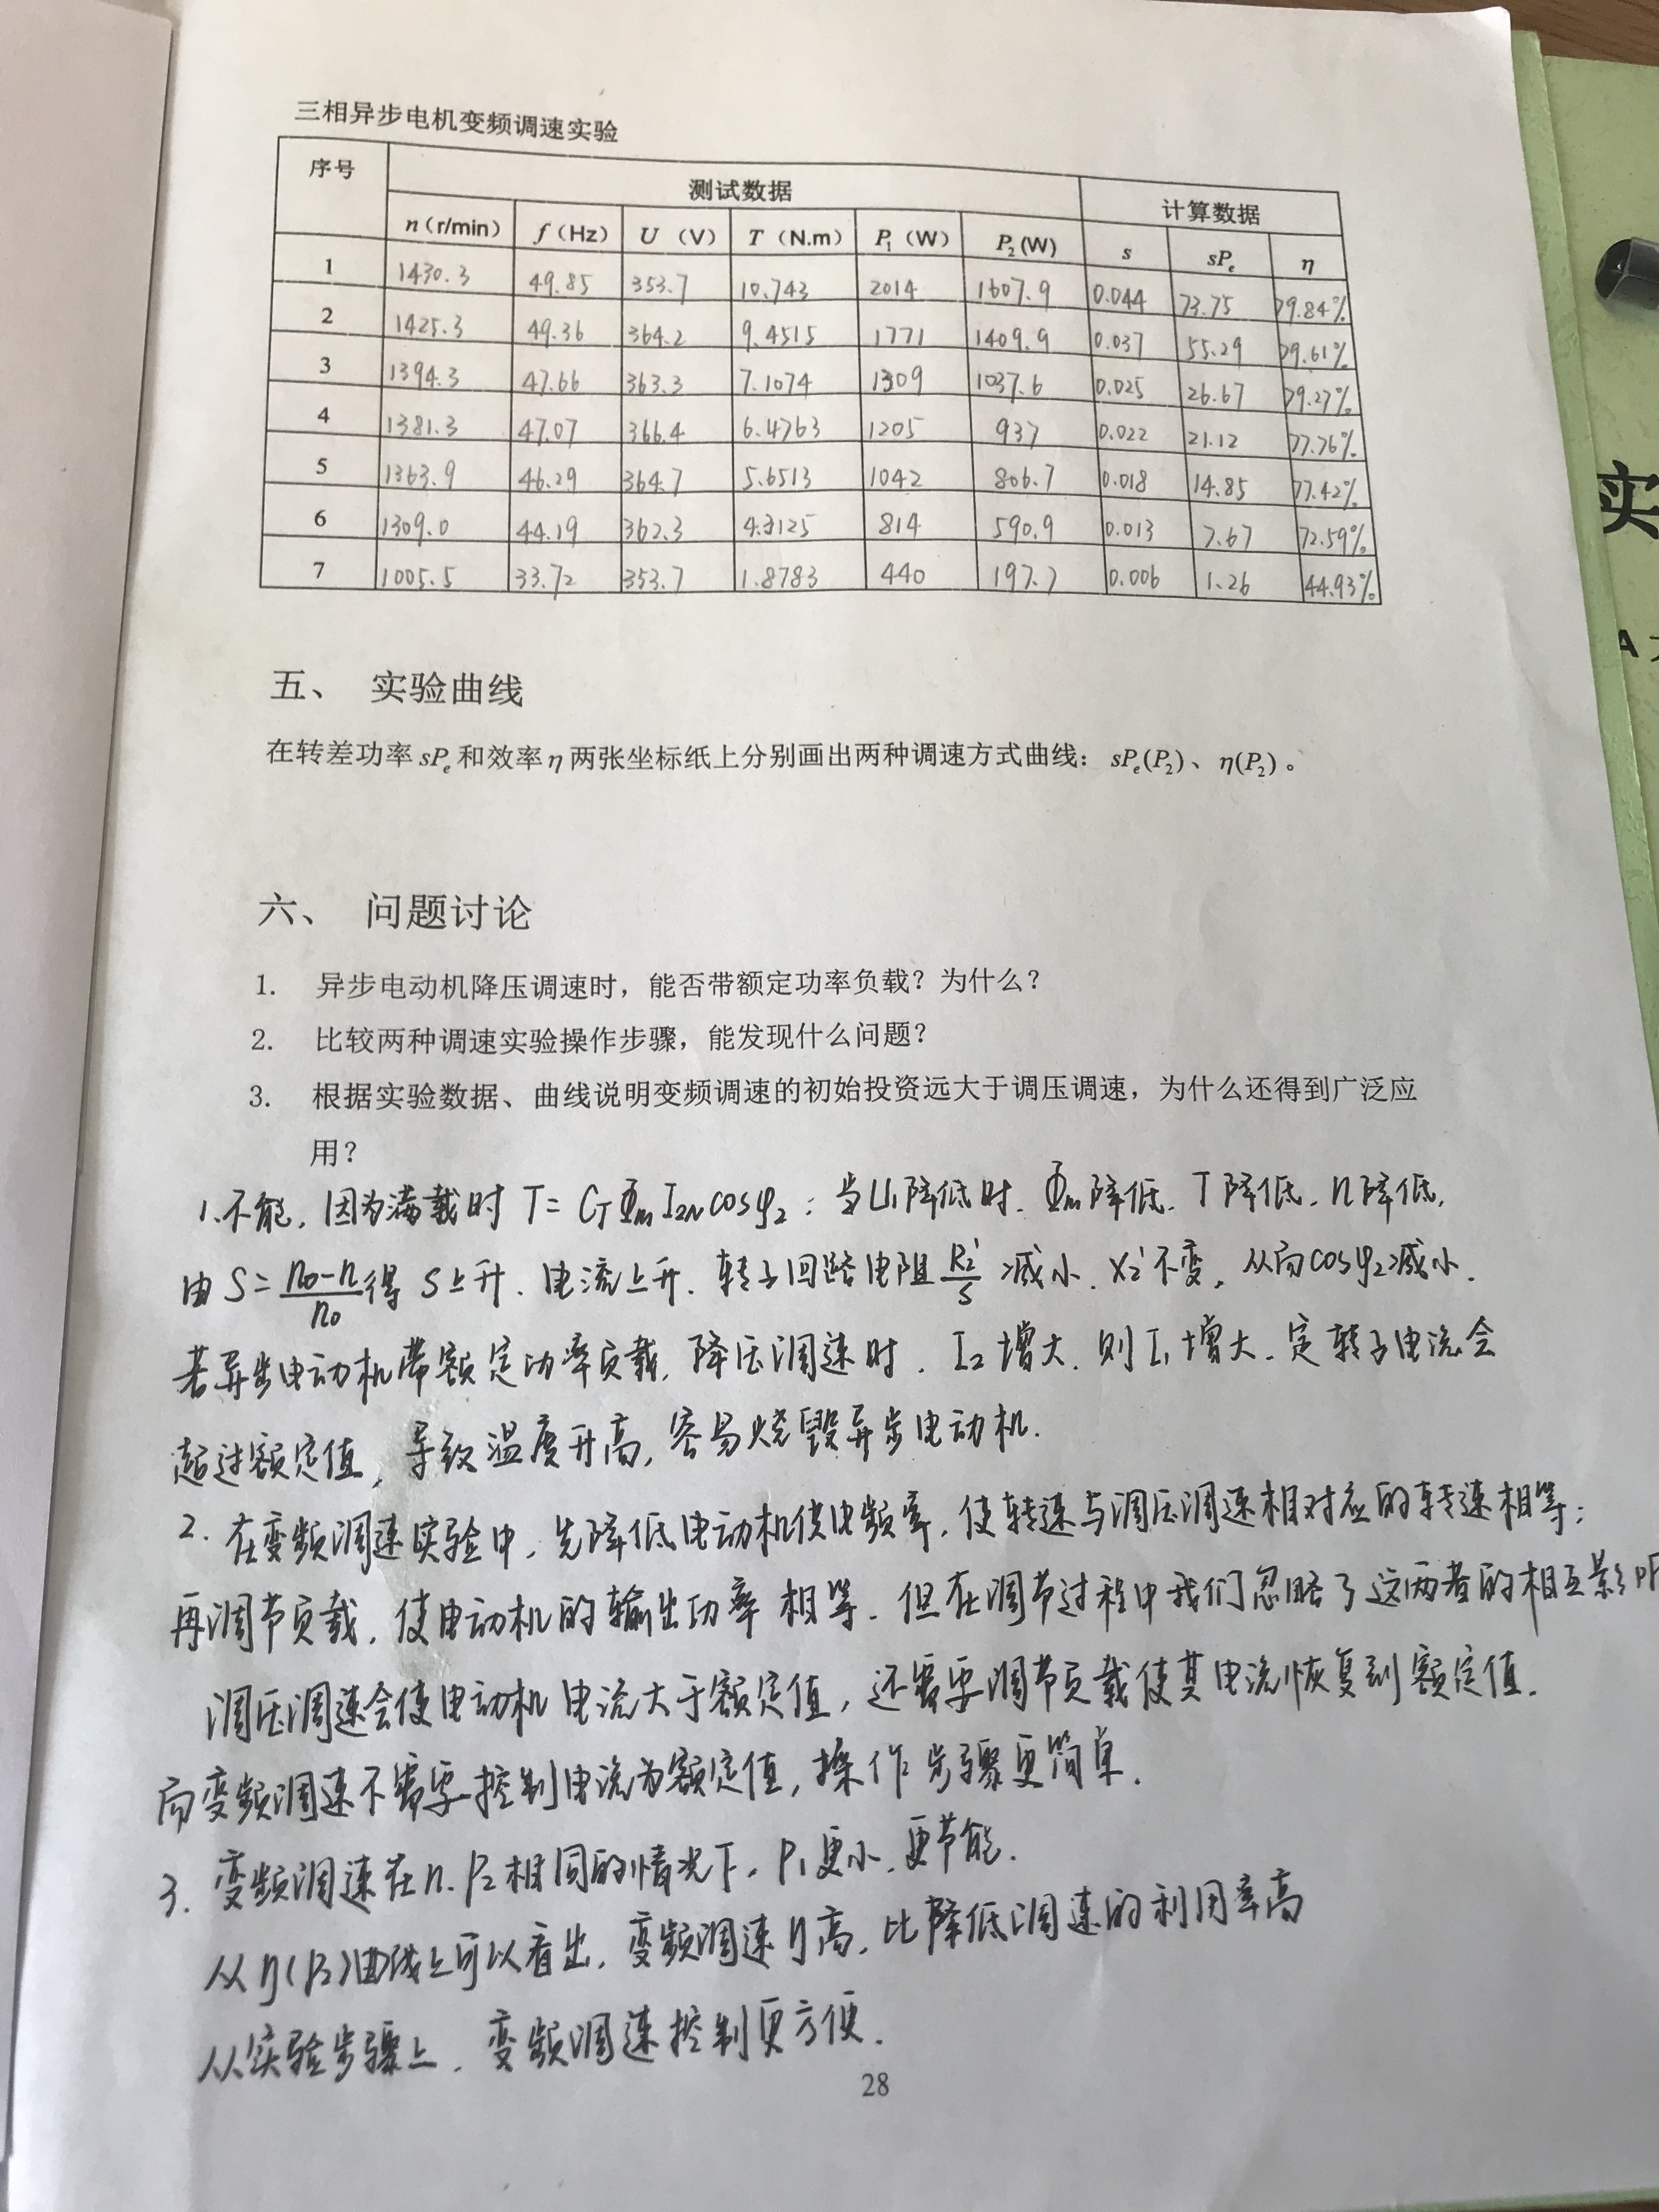 三相异步电机变频调速实验
序号 测试数据 计算数据
n(r/min) f(Hz) U (V) T (N.m) P₁ (W) P₂(W) s sPₑ η
1 1430.3 49.85 353.7 10.743 2014 1607.9 0.044 73.75 79.84%
2 1425.3 49.36 364.2 9.4515 1771 1409.9 0.037 55.29 79.61%
3 1394.3 47.66 363.3 7.1074 1309 1037.6 0.025 26.67 79.27%
4 1381.3 47.07 366.4 6.4763 1205 937 0.022 21.12 77.76%
5 1363.9 46.29 364.7 5.6513 1042 806.7 0.018 14.85 77.42%
6 1309.0 44.19 362.3 4.3125 814 590.9 0.013 7.67 72.59%
7 1005.5 33.72 353.7 1.8783 440 197.7 0.006 1.26 44.93%
五、 实验曲线
在转差功率 sPₑ 和效率 η 两张坐标纸上分别画出两种调速方式曲线：sPₑ(P₂)、η(P₂)。
六、 问题讨论
1. 异步电动机降压调速时，能否带额定功率负载？为什么？
2. 比较两种调速实验操作步骤，能发现什么问题？
3. 根据实验数据、曲线说明变频调速的初始投资远大于调压调速，为什么还得到广泛应
用？
1.不能，因为满载时 T=C_TΦ_mI_2Ncosφ₂：当U₁降低时．Φm降低．T降低．n降低．
由 S=(n₀-n)/n₀ 得 S上升．电流上升．转子回路电阻 R₂'/S 减小．X₂'不变，从而cosφ₂减小．
若异步电动机带额定功率负载．降压调速时．I₂增大．则I₁增大．定转子电流会
超过额定值，导致温度升高，容易烧毁异步电动机．
2．在变频调速实验中，先降低电动机供电频率，使转速与调压调速相对应的转速相等；
再调节负载，使电动机的输出功率相等．但在调节过程中我们忽略了这两者的相互影响
调压调速会使电动机电流大于额定值，还需要调节负载使其电流恢复到额定值．
而变频调速不需要控制电流为额定值，操作步骤更简单．
3．变频调速在n．P₂相同的情况下．P₁更小．更节能．
从η(P₂)曲线上可以看出．变频调速η高，比降低调速的利用率高
从实验步骤上．变频调速控制更方便．
28
实
A